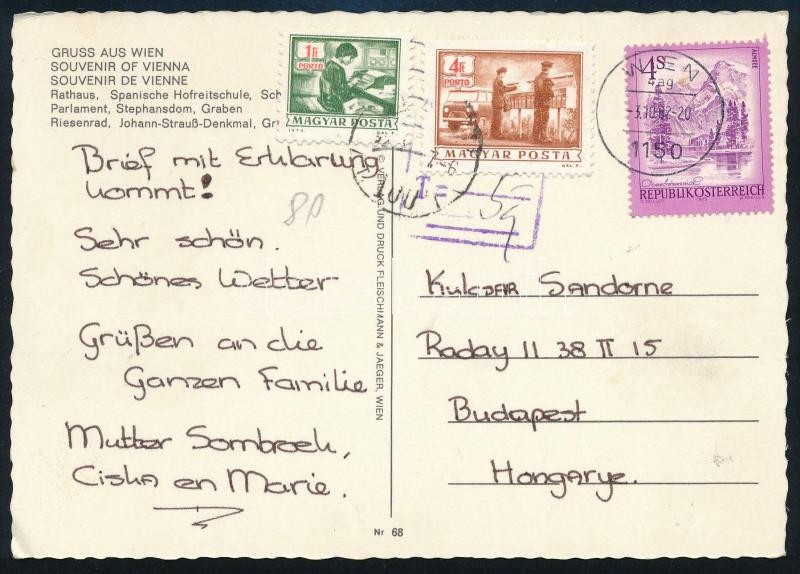 GRUSS AUS WIEN
SOUVENIR OF VIENNA
SOUVENIR DE VIENNE
Rathaus, Spanische Hofreitschule, Sch
Parlament, Stephansdom, Graben
Riesenrad, Johann-Strauß-Denkmal, Gr
1Ft
PORTO
MAGYAR POSTA
1973 GÁL F.
4Ft
PORTO
MAGYAR POSTA
GÁL F.
4S
ALMSEE
Oberösterreich
REPUBLIK ÖSTERREICH
WIEN
-3.10.82-20
1150
T=
Brief mit Erklarung
kommt!
80
Sehr schön.
Schönes Wetter
Grüßen an die
Ganzen Familie
Mutter Sombroek,
Ciska en Marie.
© VERLAG UND DRUCK FLEISCHMANN & JAEGER, WIEN
Nr 68
Kulcsar Sandorne
Raday 11 38 II 15
Budapest
Hongarye.